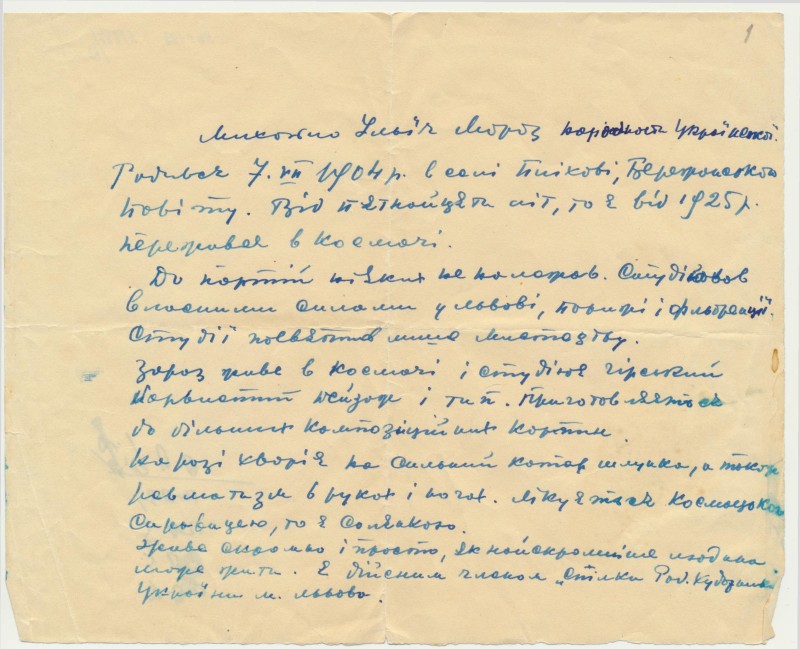 1
Михайло Ілліч Мороз народности української.
Родився 7. VII 1904 р. в селі Плихові, Бережанского
повіту. Від пятнайцяти літ, то є від 1925 р.
переживає в Космачі.
До партій ніяких не належав. Студіював
власними силами у Львові, Парижі і Фльоренції.
Студії посвятив лише мистецтву.
Зараз живе в Космачі і студіює гірський
барвистий пейзаж і типи. Приготовляється
до більших композиційних картин.
На разі хворіє на сильний катар шлунка, а також
ревматизм в руках і ногах. Лікується космацькою
сировицею, то є солянкою.
Живе скромно і просто, як найскромніше людина
може жити. Є дійсним членом „Спілки Рад. Художників
України м. Львова.